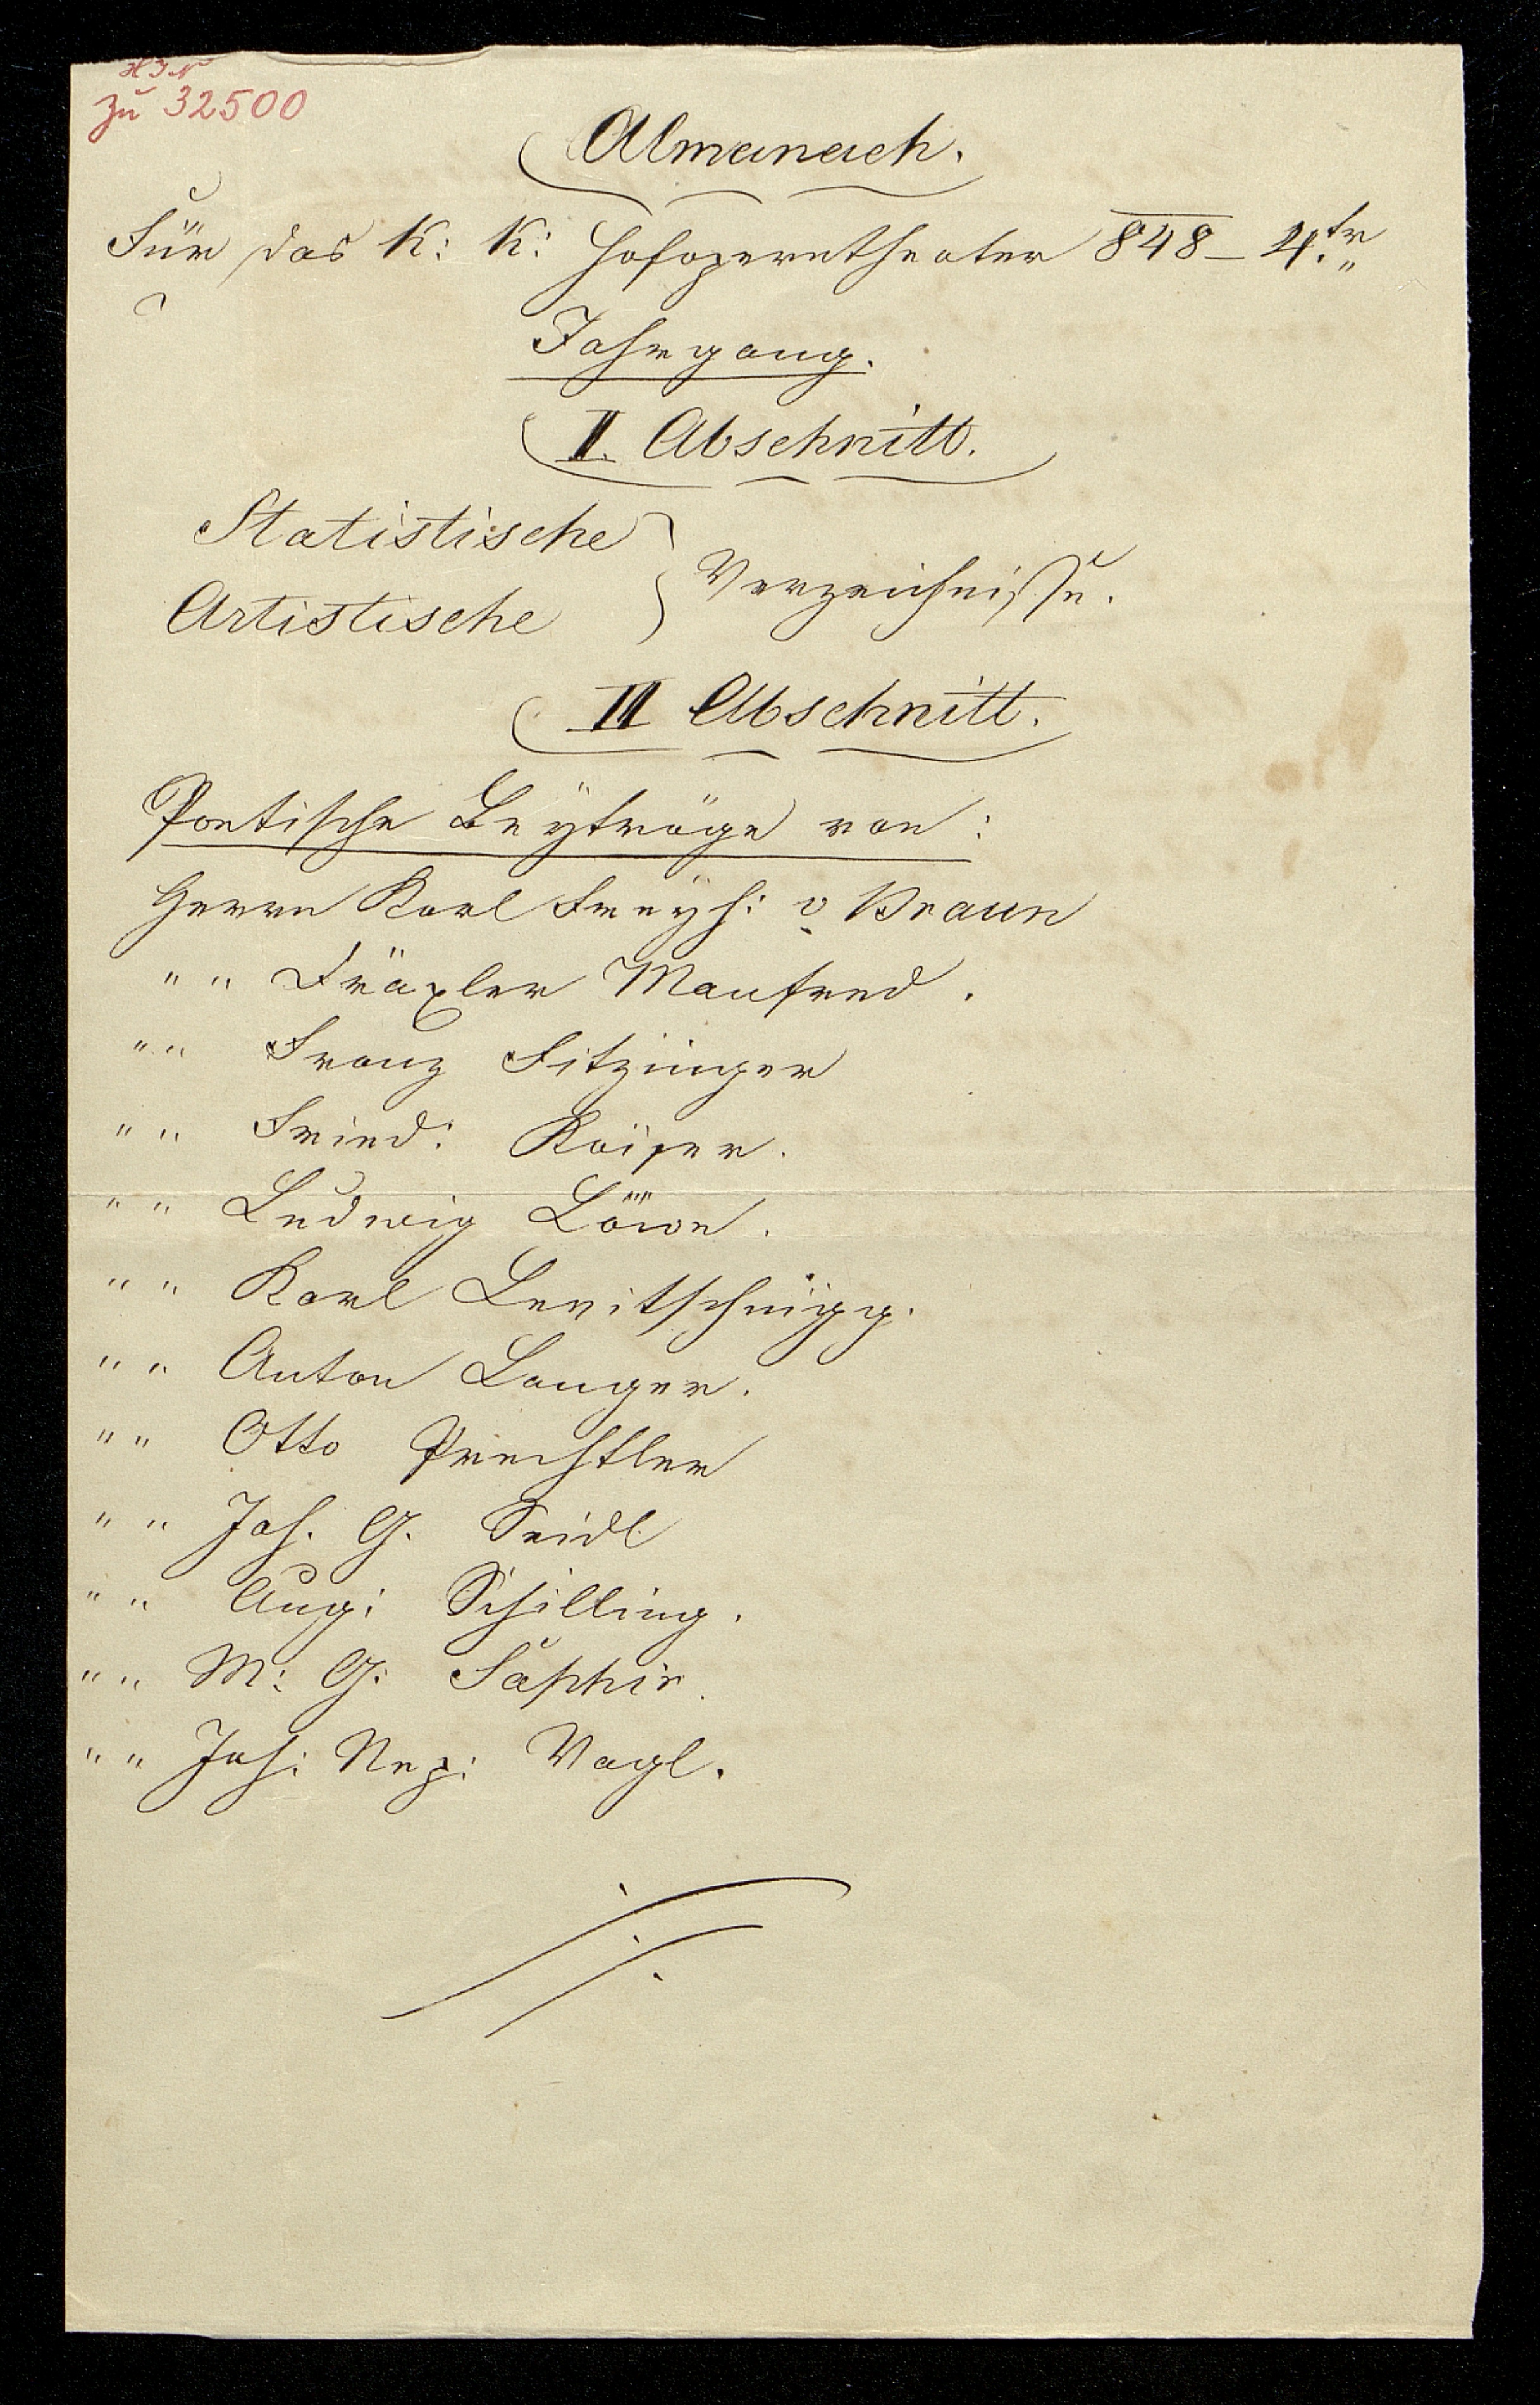 H.I.N
zu 32500
Almanach.
Für das K: K: Hofoperntheater 848 – 4.tr
Jahrgang.
I. Abschnitt.
Statistische
Artistische } Verzeichnisse.
II Abschnitt.
Poetische Beyträge von:
Herrn Karl Freyh: v Braun
" " Dräxler Manfred.
" " Franz Fitzinger
" " Fried: Kaiser.
" " Ludwig Löwe.
" " Karl Levitschnigg.
" " Anton Langer.
" " Otto Prechtler
" " Joh. G. Seidl
" " Aug: Schilling.
" " M: G: Saphir.
" " Joh: Nep: Vogl.